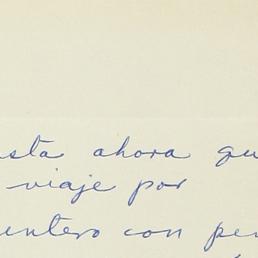 sta ahora qu
viaje por
entero con pe